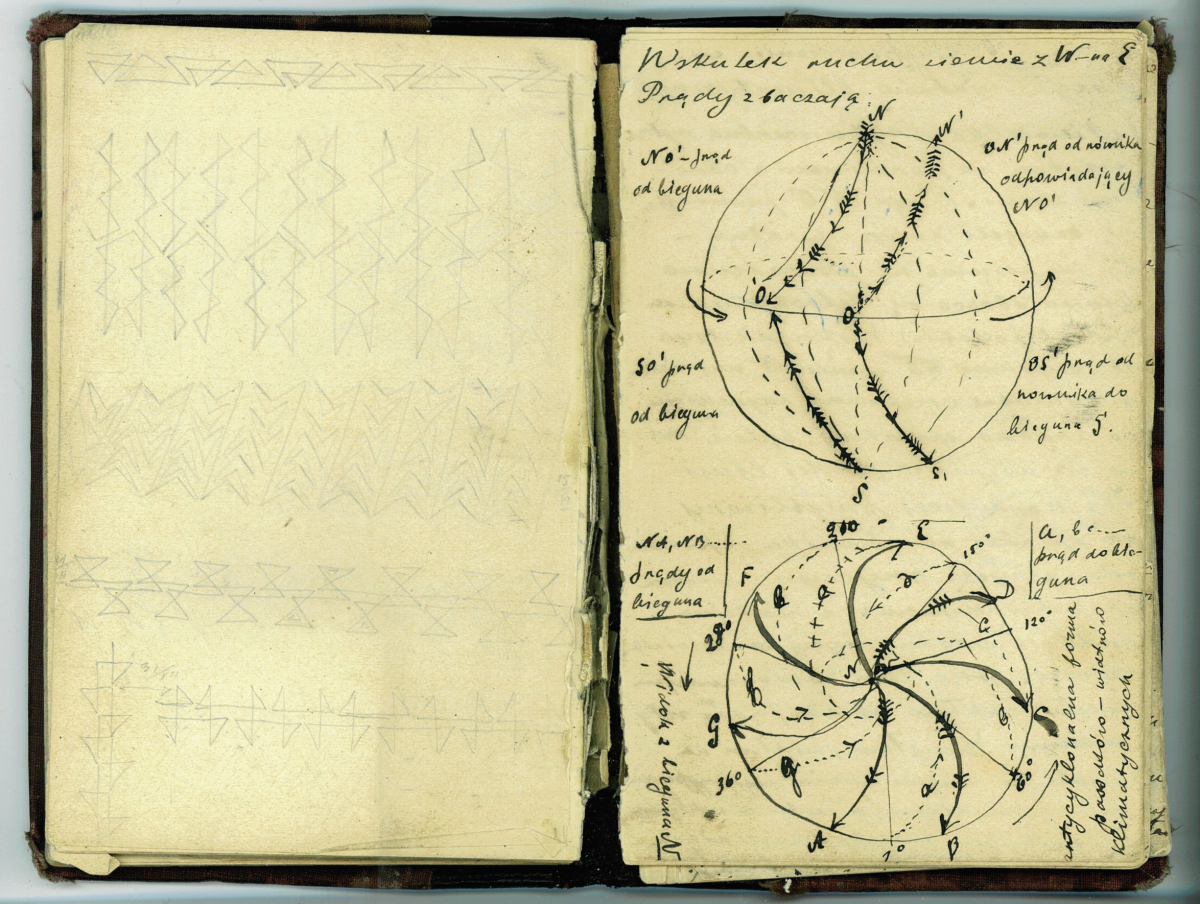 Wskutek ruchu ziemie z W-na E
Prądy zbaczają
N
N'
NO'-prąd
od bieguna
ON' prąd od równika
odpowiadający
NO'
O'
O
SO' prąd
od bieguna
OS' prąd od
równika do
bieguna S.
S
S'
NA, NB......
prądy od
bieguna
a, b c....
prąd do bie-
guna
E
150°
F
D
120°
N
C
G
36°
60°
A
1°
B
Widok z bieguna N
antycyklonalna forma
passatów-wiatrów
klimatycznych